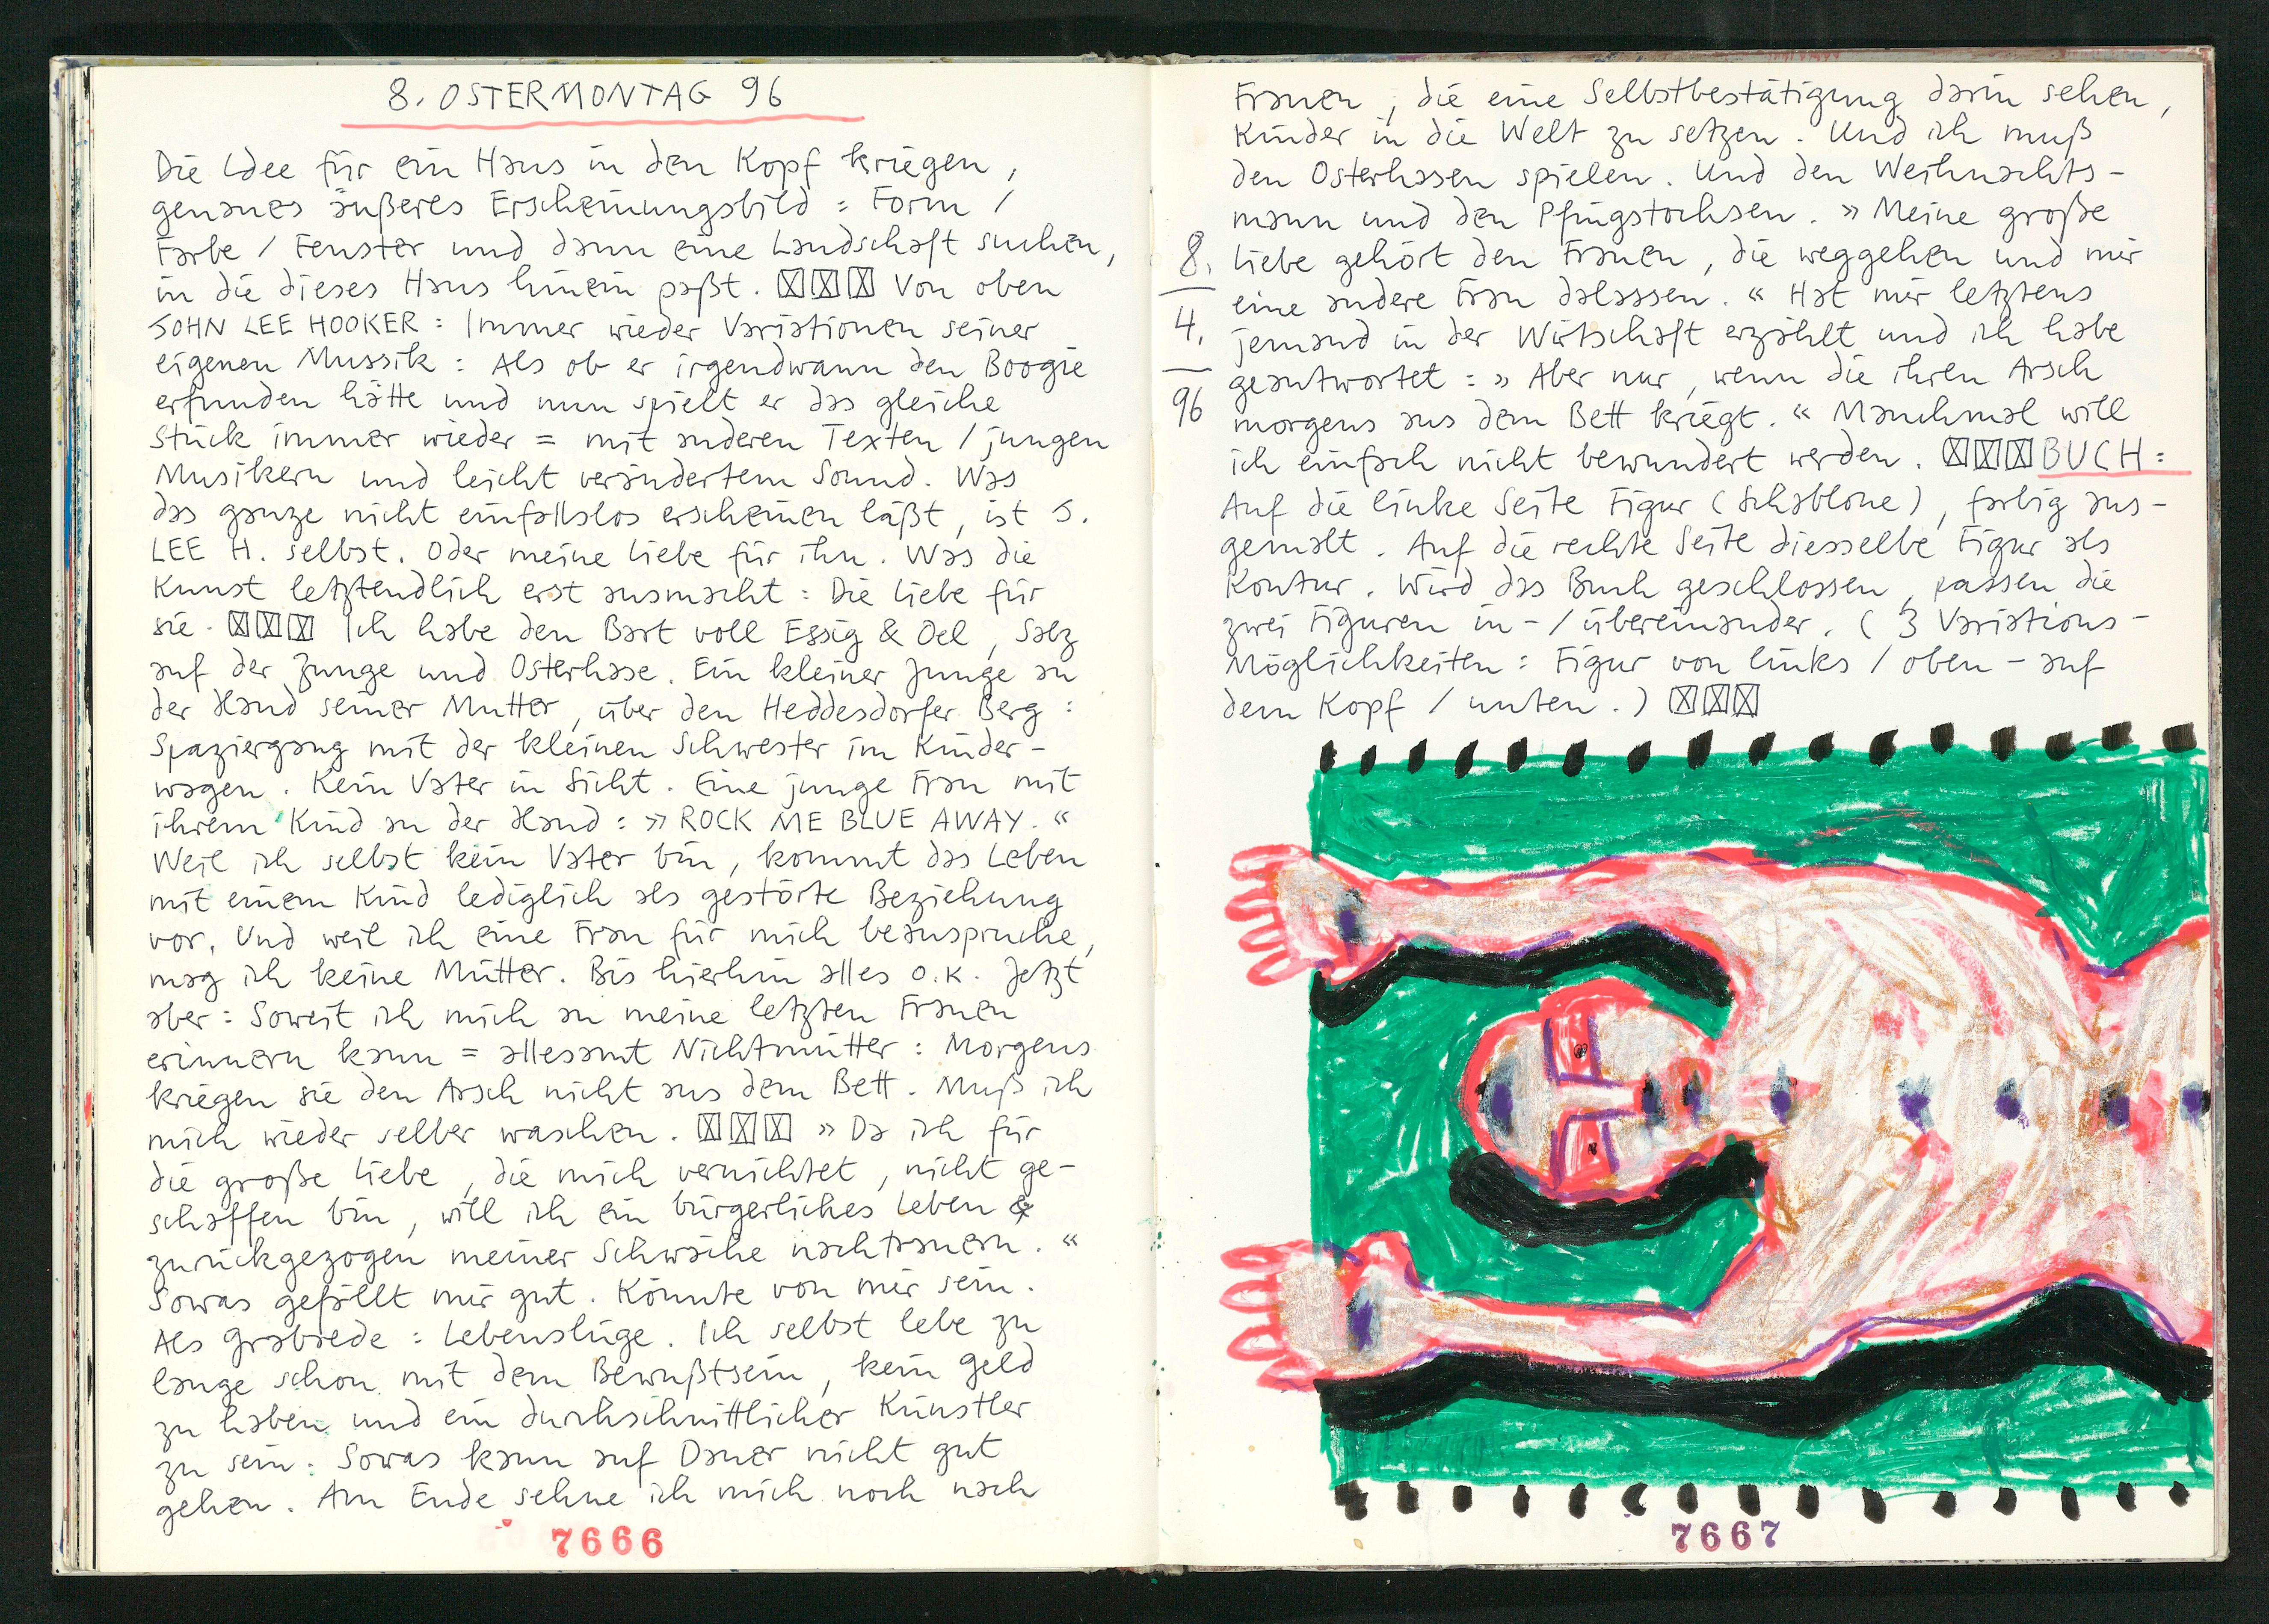 8. OSTERMONTAG 96
Die Idee für ein Haus in den Kopf kriegen,
genaues äußeres Erscheinungsbild = Form /
Farbe / Fenster und dann eine Landschaft suchen,
in die dieses Haus hinein paßt. ☒☒☒ Von oben
JOHN LEE HOOKER: Immer wieder Variationen seiner
eigenen Mussik: Als ob er irgendwann den Boogie
erfunden hätte und nun spielt er das gleiche
Stück immer wieder = mit anderen Texten / jungen
Musikern und leicht verändertem Sound. Was
das ganze nicht einfallslos erscheinen läßt, ist J.
LEE H. selbst. Oder meine Liebe für ihn. Was die
Kunst letztendlich erst ausmacht: Die Liebe für
sie. ☒☒☒ Ich habe den Bart voll Essig & Oel, Salz
auf der Zunge und Osterhase. Ein kleiner Junge an
der Hand seiner Mutter, über den Heddesdorfer Berg:
Spaziergang mit der kleinen Schwester im Kinder-
wagen. Kein Vater in Sicht. Eine junge Frau mit
ihrem Kind an der Hand: » ROCK ME BLUE AWAY. «
Weil ich selbst kein Vater bin, kommt das Leben
mit einem Kind lediglich als gestörte Beziehung
vor. Und weil ich eine Frau für mich beanspruche,
mag ich keine Mütter. Bis hierhin alles o.k. Jetzt
aber: Soweit ich mich an meine letzten Frauen
erinnern kann = allesamt Nichtmütter: Morgens
kriegen sie den Arsch nicht aus dem Bett. Muß ich
mich wieder selber waschen. ☒☒☒ » Da ich für
die große Liebe, die mich vernichtet, nicht ge-
schaffen bin, will ich ein bürgerliches Leben &
zurückgezogen meiner Schwäche nachtrauern. «
Sowas gefällt mir gut. Könnte von mir sein.
Als Grabrede: Lebenslüge. Ich selbst lebe zu
lange schon mit dem Bewußtsein, kein Geld
zu haben und ein durchschnittlicher Künstler
zu sein: Sowas kann auf Dauer nicht gut
gehen. Am Ende sehne ich mich noch nach
7666
Frauen, die eine Selbstbestätigung darin sehen,
Kinder in die Welt zu setzen. Und ich muß
den Osterhasen spielen. Und den Weihnachts-
mann und den Pfingstochsen. » Meine große
Liebe gehört den Frauen, die weggehen und mir
eine andere Frau dalassen. « Hat mir letztens
jemand in der Wirtschaft erzählt und ich habe
geantwortet: » Aber nur, wenn die ihren Arsch
morgens aus dem Bett kriegt. « Manchmal will
ich einfach nicht bewundert werden. ☒☒☒ BUCH:
Auf die linke Seite Figur (Schablone), farbig aus-
gemalt. Auf die rechte Seite diesselbe Figur als
Kontur. Wird das Buch geschlossen, passen die
zwei Figuren in- / übereinander. (3 Variations-
Möglichkeiten: Figur von links / oben - auf
dem Kopf / unten.) ☒☒☒
8.
4.
96
7667